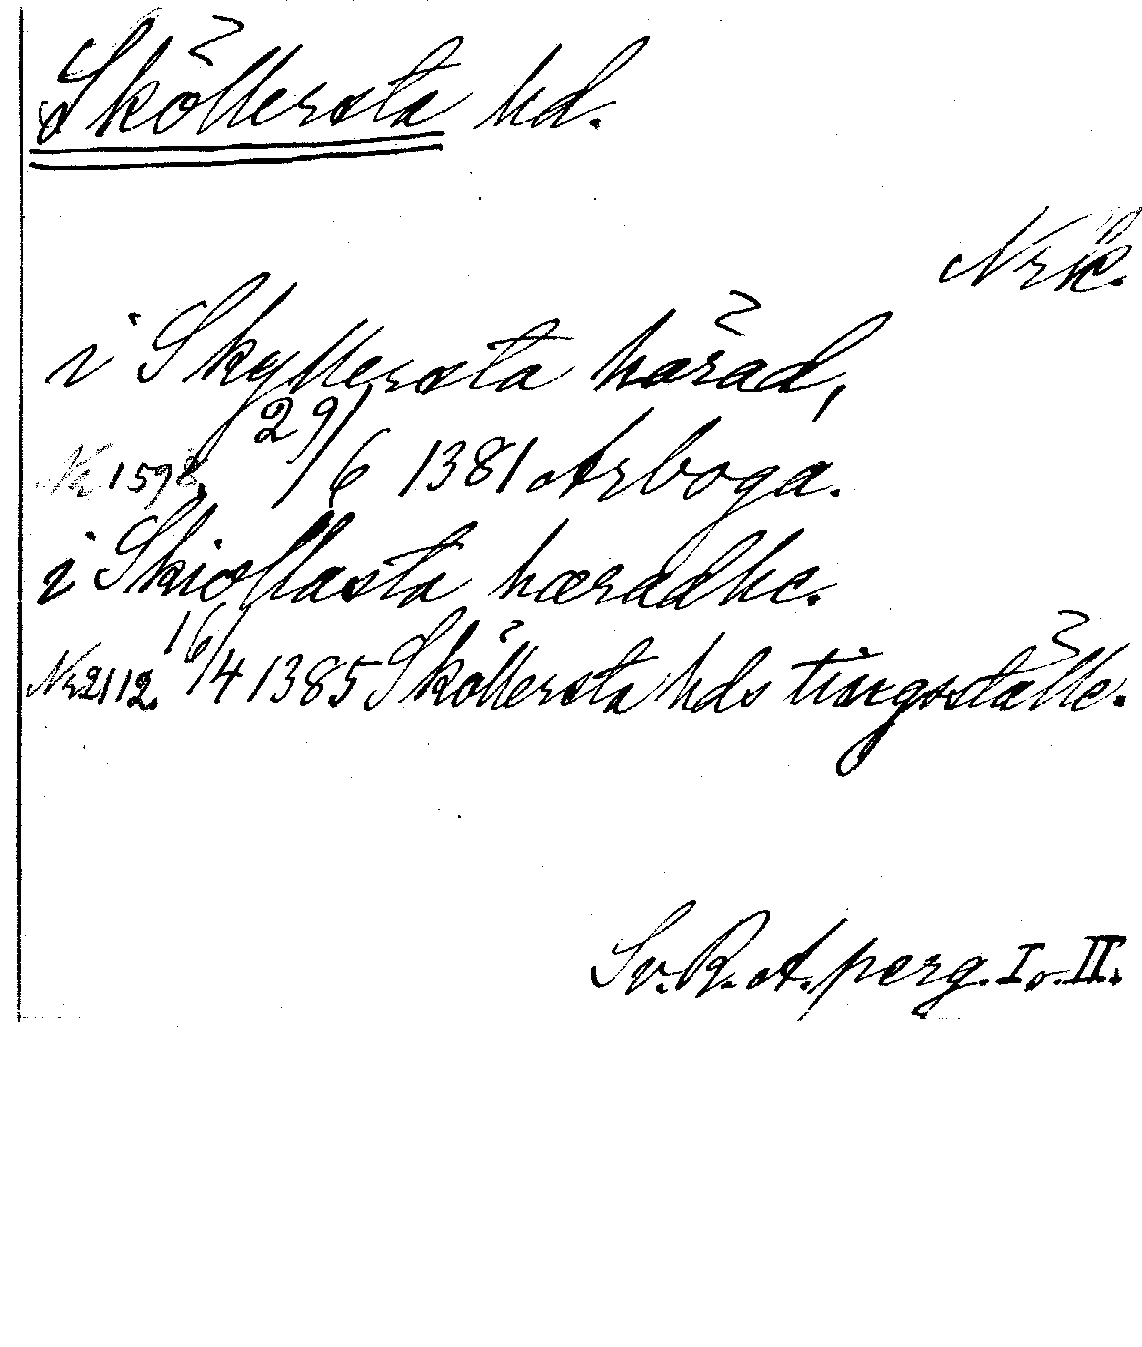 Sköllersta hd.
Nrk.
i Skyllersta härad,
Nr 1598. 29/6 1381 Arboga.
i Skiøllasta hæradhe.
Nr 2112. 16/4 1385 Sköllersta hds tingställe.
Sv. R. A. perg. I o. II.